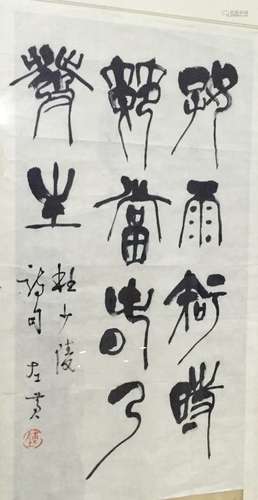 好雨知時
節當春乃
發生
杜少陵
詩句